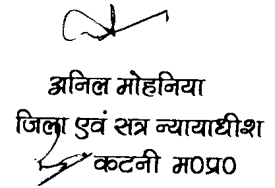 अनिल मोहनिया
जिला एवं सत्र न्यायाधीश
कटनी म०प्र०